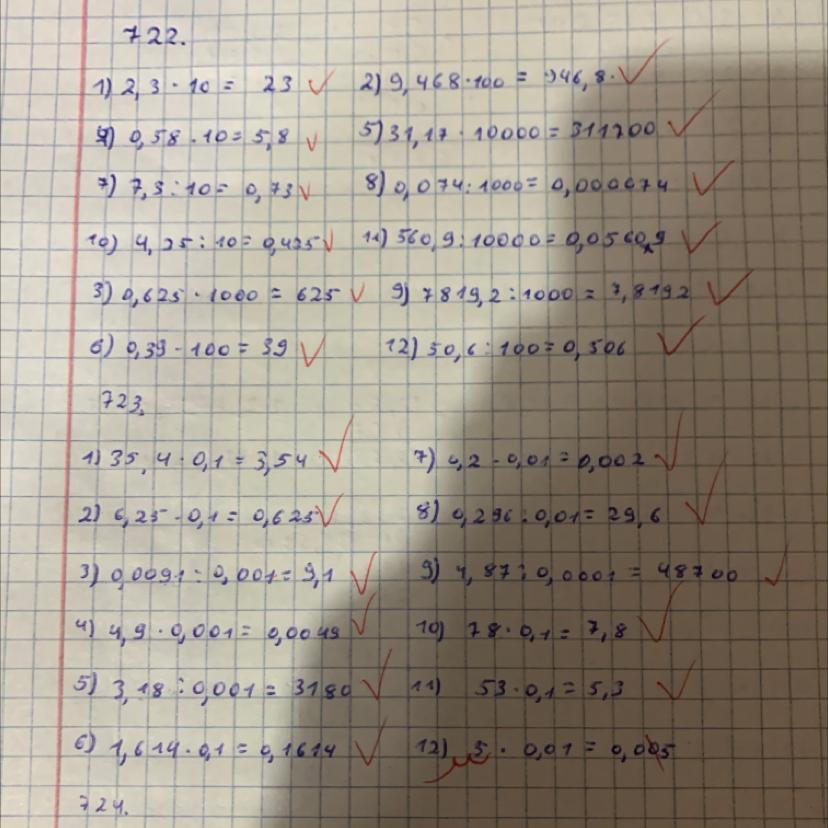 722.
1) 2,3 · 10 = 23 2) 9,468 · 100 = 946,8.
4) 0,58 · 10 = 5,8 5) 31,17 · 10000 = 311700
7) 7,3 : 10 = 0,73 8) 0,074 : 1000 = 0,000074
10) 4,25 : 10 = 0,425 11) 560,9 : 10000 = 0,05609
3) 0,625 · 1000 = 625 9) 7819,2 : 1000 = 7,8192
6) 0,39 · 100 = 39 12) 50,6 : 100 = 0,506
723.
1) 35,4 · 0,1 = 3,54 7) 0,2 · 0,01 = 0,002
2) 6,25 · 0,1 = 0,625 8) 0,296 : 0,01 = 29,6
3) 0,0091 : 0,001 = 9,1 9) 4,87 : 0,0001 = 48700
4) 4,9 · 0,001 = 0,0049 10) 78 · 0,1 = 7,8
5) 3,18 : 0,001 = 3180 11) 53 · 0,1 = 5,3
6) 1,614 · 0,1 = 0,1614 12) 5 · 0,01 = 0,005
724.